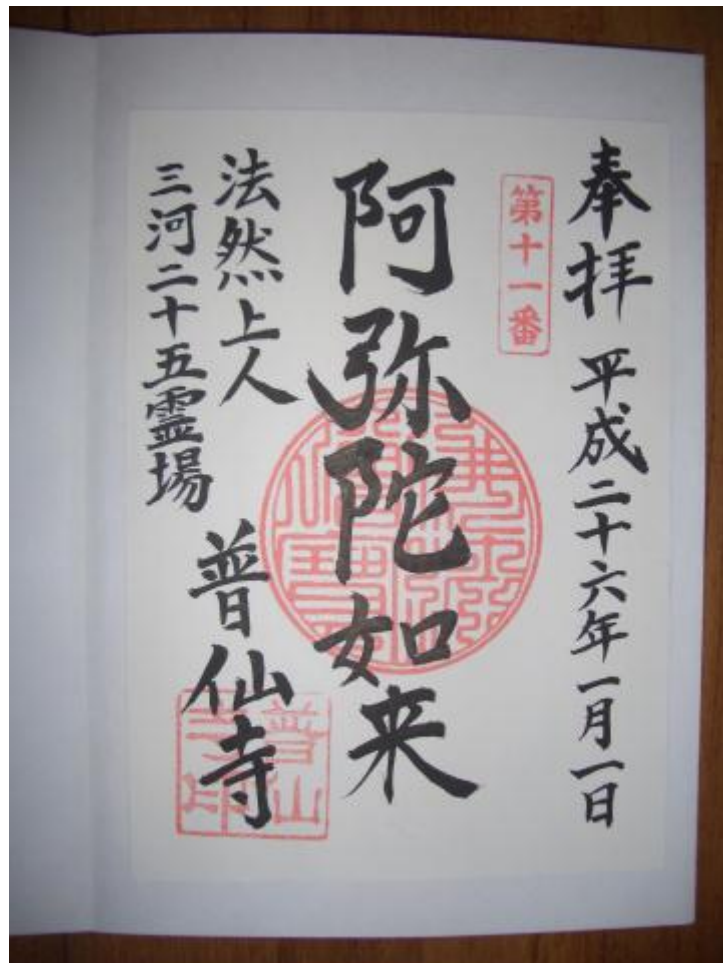 奉拝 平成二十六年一月一日
第十一番
阿弥陀如来
法然上人
三河二十五霊場
普仙寺